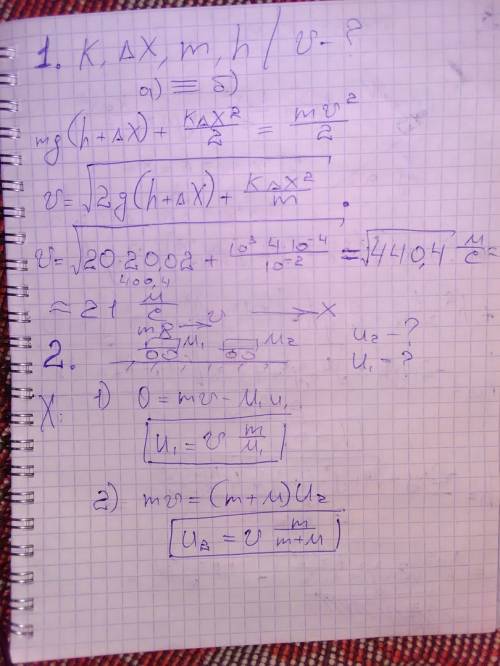 1. K, ΔX, m, h / v - ?
а) ≡ б)
mg(h+ΔX) + KΔX²/2 = mv²/2
v = √(2g(h+ΔX) + KΔX²/m).
v = √(20·20,02 + 10³·4·10⁻⁴/10⁻²) = √440,4 м/с ≈
400,4
≈ 21 м/с
m v → X
2. M₁ M₂ u₂ - ?
u₁ - ?
X: 1) 0 = mv - M₁u₁
u₁ = v m/M₁
2) mv = (m+M)u₂
u₂ = v m/(m+M)